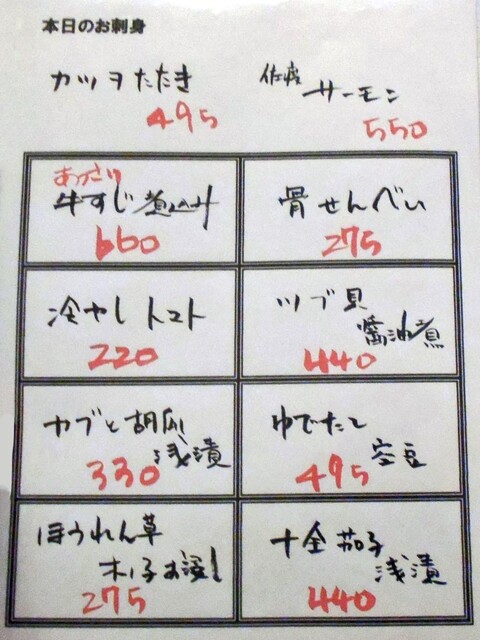 本日のお刺身
カツオたたき
495
佐渡
サーモン
550
あっさり
牛すじ煮込み
660
骨せんべい
275
冷やしトマト
220
ツブ貝
醤油煮
440
カブと胡瓜
浅漬
330
ゆでたて
空豆
495
ほうれん草
お浸し
275
十全茄子
浅漬
440